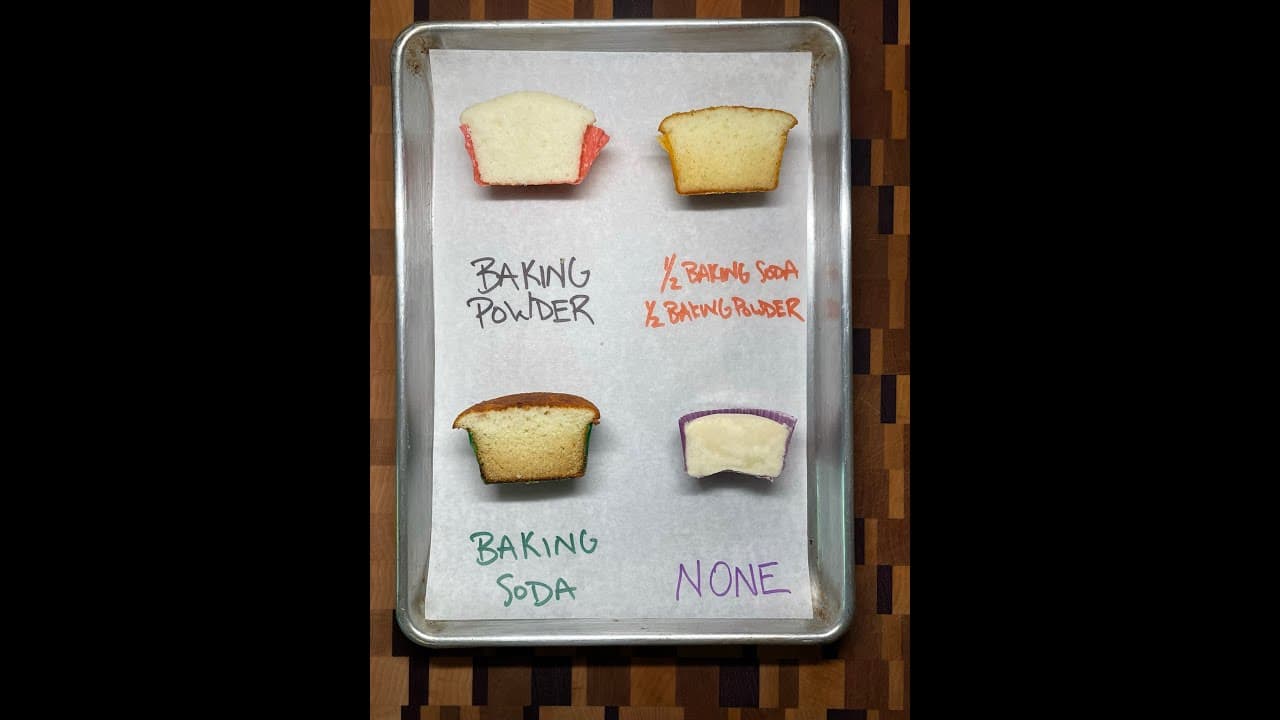 BAKING
POWDER
1/2 BAKING SODA
1/2 BAKING POWDER
BAKING
SODA
NONE